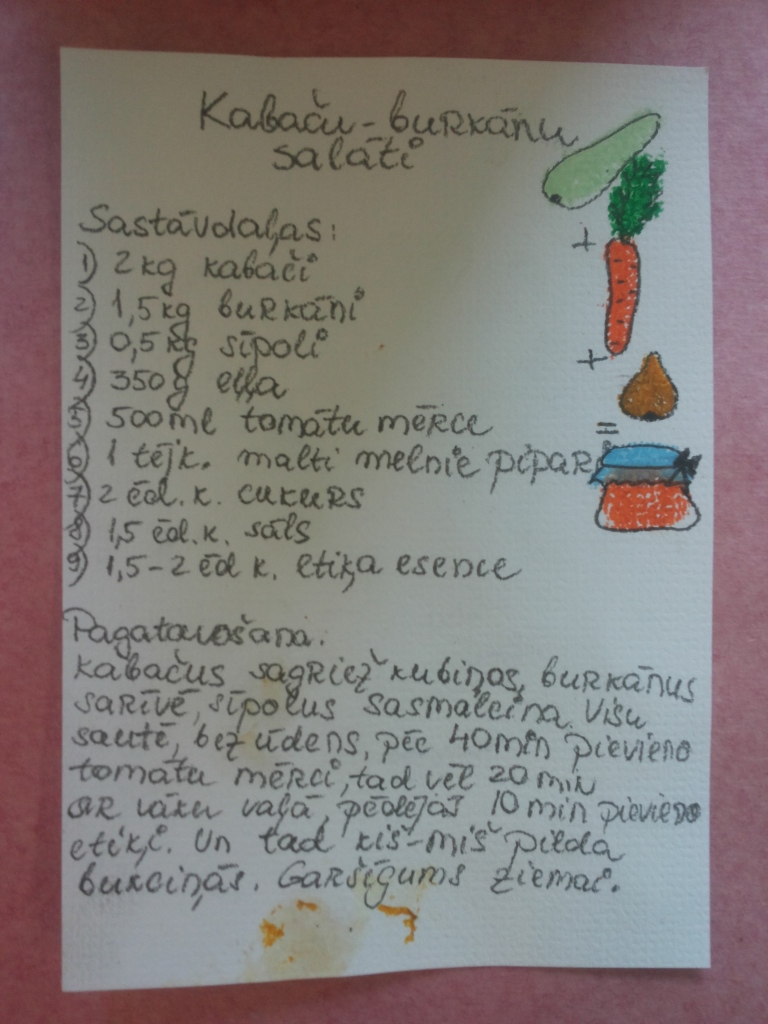 Kabaču-burkānu
salāti
Sastāvdaļas:
1) 2 kg kabači
2) 1,5 kg burkāni
3) 0,5 kg sīpoli
4) 350 g eļļa
5) 500 ml tomātu mērce
6) 1 tējk. malti melnie pipari
7) 2 ēd. k. cukurs
8) 1,5 ēd. k. sāls
9) 1,5-2 ēd k. etiķa esence
+
+
=
Pagatavošana.
Kabačus sagriež kubiņos, burkānus
sarīvē, sīpolus sasmalcina. Visu
sautē, bez ūdens, pēc 40 min pievieno
tomātu mērci, tad vēl 20 min
ar vāku vaļā, pēdējās 10 min pievieno
etiķi. Un tad kiš-miš pilda
burciņās. Garšīgums ziemai.